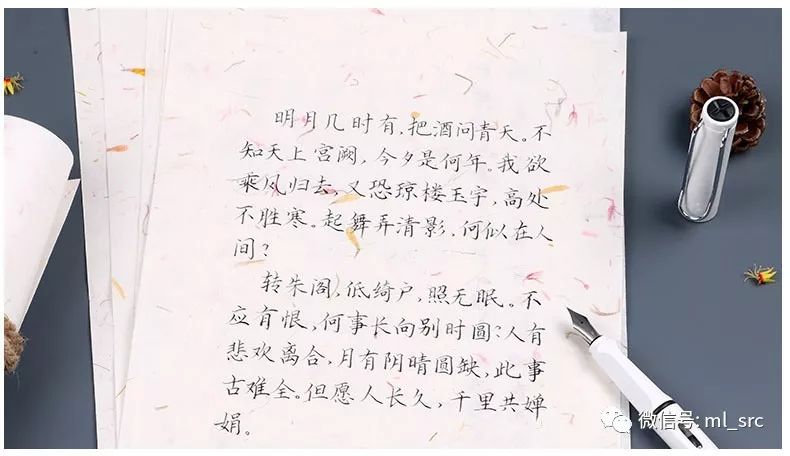 明月几时有，把酒问青天。不
知天上宫阙，今夕是何年。我欲
乘风归去，又恐琼楼玉宇，高处
不胜寒。起舞弄清影，何似在人
间？
转朱阁，低绮户，照无眠。不
应有恨，何事长向别时圆？人有
悲欢离合，月有阴晴圆缺，此事
古难全。但愿人长久，千里共婵
娟。
微信号: ml_src